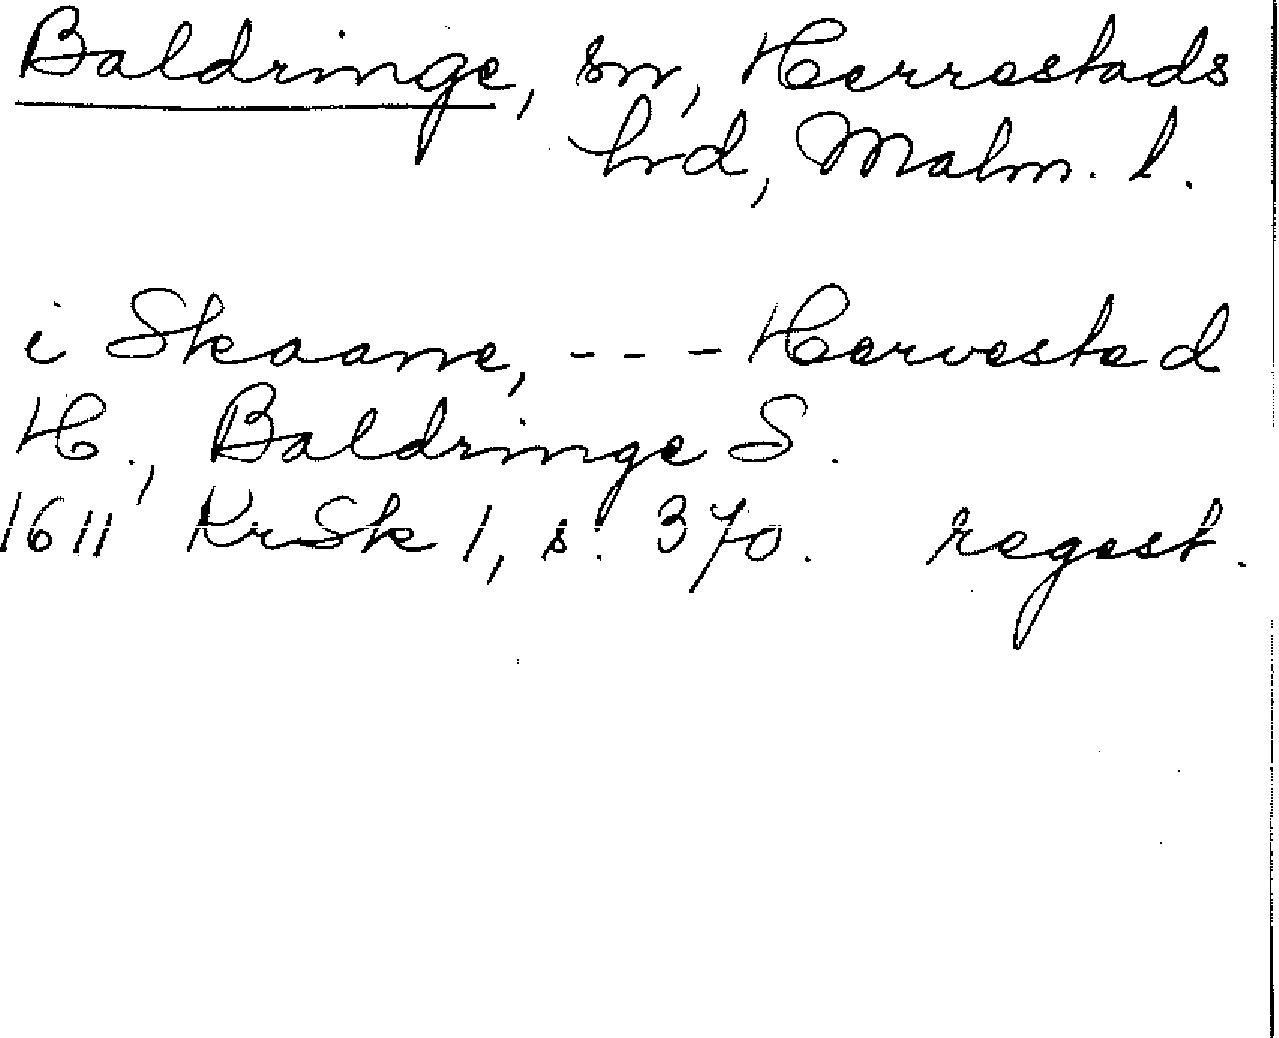 Baldringe, sn, Herrestads
hrd, Malm. l.
i Skaane, - - - Hervested
H., Baldringe S.
1611 KrSk 1, s. 370. regest.